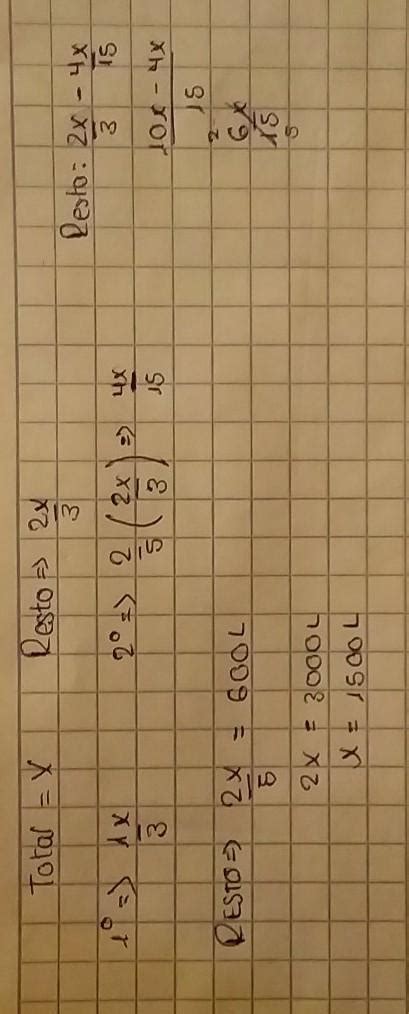 Total = x Resto => 2x/3
1º => 1x/3 2º => 2/5 (2x/3) => 4x/15
Resto: 2x/3 - 4x/15
10x - 4x/15
2 6x/15 5
RESTO => 2x/5 = 600L
2x = 3000L
x = 1500L